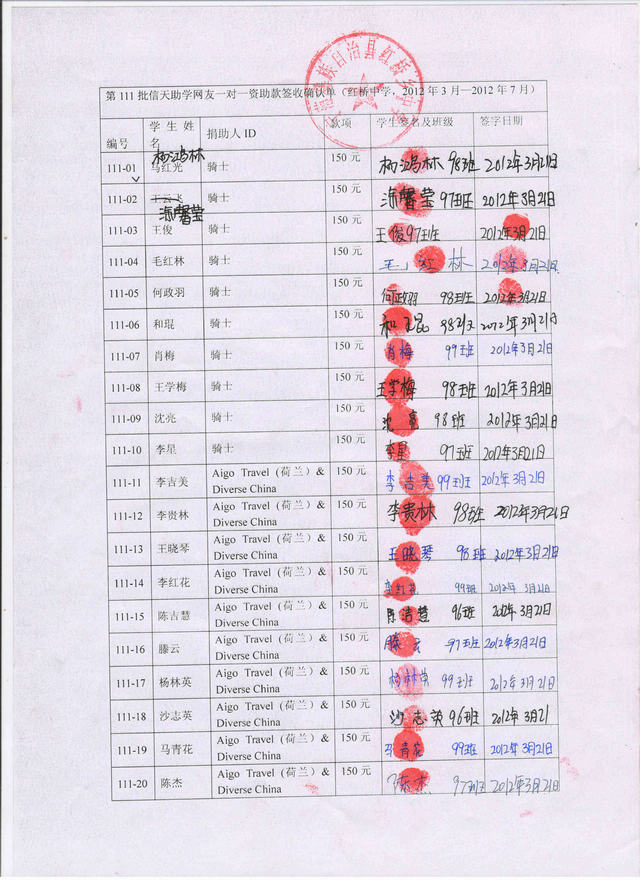 族自治县红桥
第 111 批信天助学网友一对一资助款签收确认单（红桥中学，2012 年 3 月—2012 年 7 月）
编号 学生姓名 捐助人 ID 款项 学生签名及班级 签字日期
杨鸿林
111-01 马红光 骑士 150 元 杨鸿林 98班 2012年3月21日
111-02 王云飞 骑士 150 元 涂馨莹 97班 2012年3月21日
涂馨莹
111-03 王俊 骑士 150 元 王俊 97班 2012年3月21日
111-04 毛红林 骑士 150 元 毛红林 2012年3月21日
111-05 何政羽 骑士 150 元 何政羽 98班 2012年3月21日
111-06 和琨 骑士 150 元 和琨 98班 2012年3月21日
111-07 肖梅 骑士 150 元 肖梅 99班 2012年3月21日
111-08 王学梅 骑士 150 元 王学梅 98班 2012年3月21日
111-09 沈亮 骑士 150 元 沈亮 98班 2012年3月21日
111-10 李星 骑士 150 元 李星 97班 2012年3月21日
111-11 李吉美 Aigo Travel (荷兰) & 150 元 李吉美 99班 2012年3月21日
Diverse China
111-12 李贵林 Aigo Travel (荷兰) & 150 元 李贵林 98班 2012年3月21日
Diverse China
111-13 王晓琴 Aigo Travel (荷兰) & 150 元 王晓琴 98班 2012年3月21日
Diverse China
111-14 李红花 Aigo Travel (荷兰) & 150 元 李红花 99班 2012年3月21日
Diverse China
111-15 陈吉慧 Aigo Travel (荷兰) & 150 元 陈吉慧 96班 2012年3月21日
Diverse China
111-16 滕云 Aigo Travel (荷兰) & 150 元 滕云 97班 2012年3月21日
Diverse China
111-17 杨林英 Aigo Travel (荷兰) & 150 元 杨林英 99班 2012年3月21日
Diverse China
111-18 沙志英 Aigo Travel (荷兰) & 150 元 沙志英 96班 2012年3月21
Diverse China
111-19 马青花 Aigo Travel (荷兰) & 150 元 马青花 99班 2012年3月21日
Diverse China
111-20 陈杰 Aigo Travel (荷兰) & 150 元 陈杰 97班 2012年3月21日
Diverse China